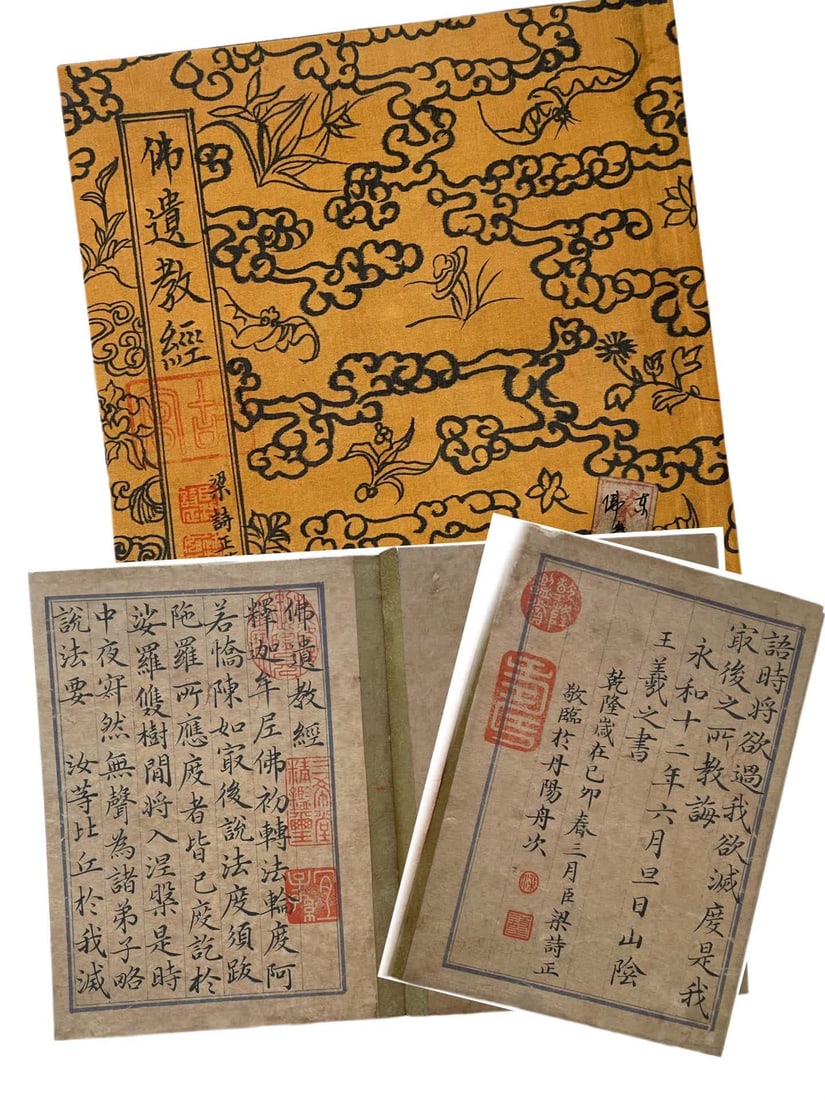 佛遺教經
梁詩正
東
佛
佛遺教經
釋迦牟尼佛初轉法輪度阿
若憍陳如冣後說法度須跋
陁羅所應度者皆已度訖於
娑羅雙樹間將入涅槃是時
中夜寂然無聲為諸弟子略
說法要 汝等比丘於我滅
三希堂精鑑璽
宜子孫
語時將欲過我欲滅度是我
冣後之所教誨
永和十二年六月旦日山陰
王羲之書
乾隆歲在己卯春三月臣梁詩正
敬臨於丹陽舟次
乾隆鑑賞